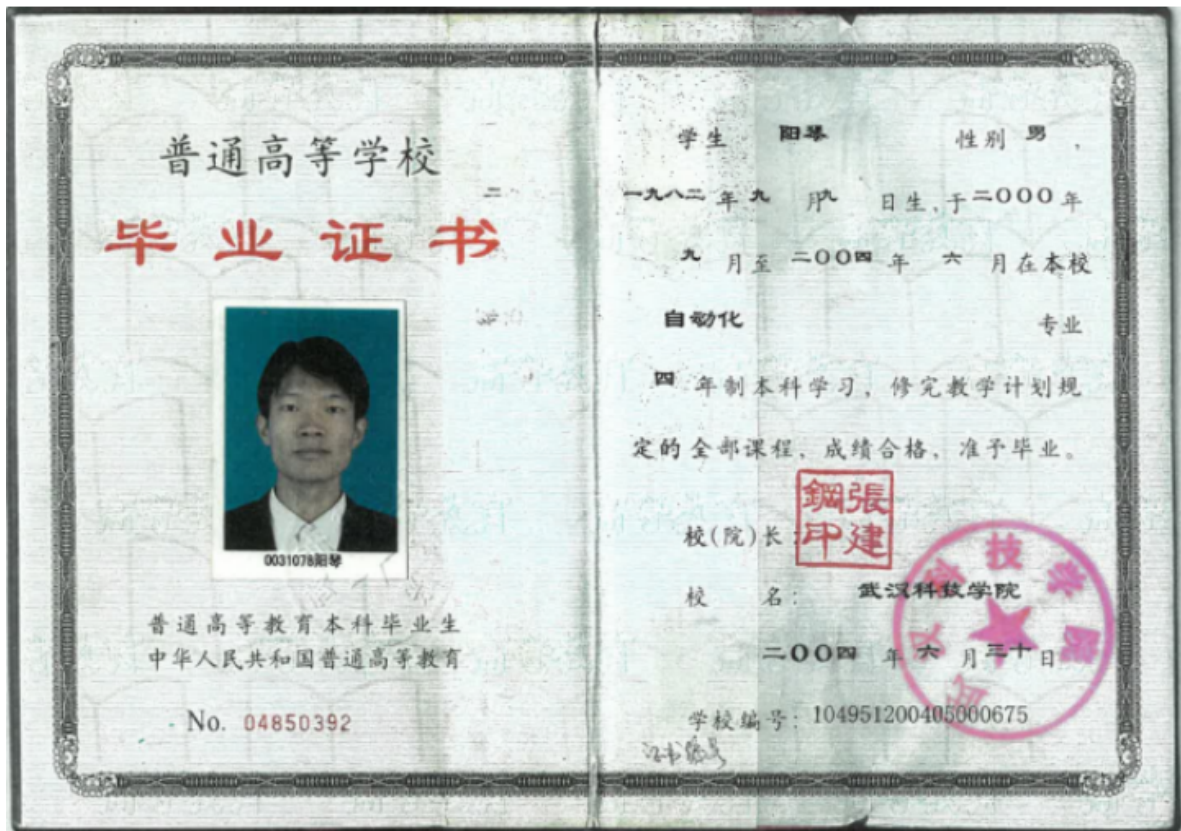 普通高等学校
毕业证书
0031078阳琴
普通高等教育本科毕业生
中华人民共和国普通高等教育
No. 04850392
学生 阳琴 性别 男,
一九八二年九月九日生,于二000年
九月至二00四年六月在本校
自动化 专业
四年制本科学习, 修完教学计划规
定的全部课程, 成绩合格, 准予毕业。
校(院)长:
張建鋼印
校 名: 武汉科技学院
二00四年六月三十日
武汉科技学院
学校编号: 104951200405000675